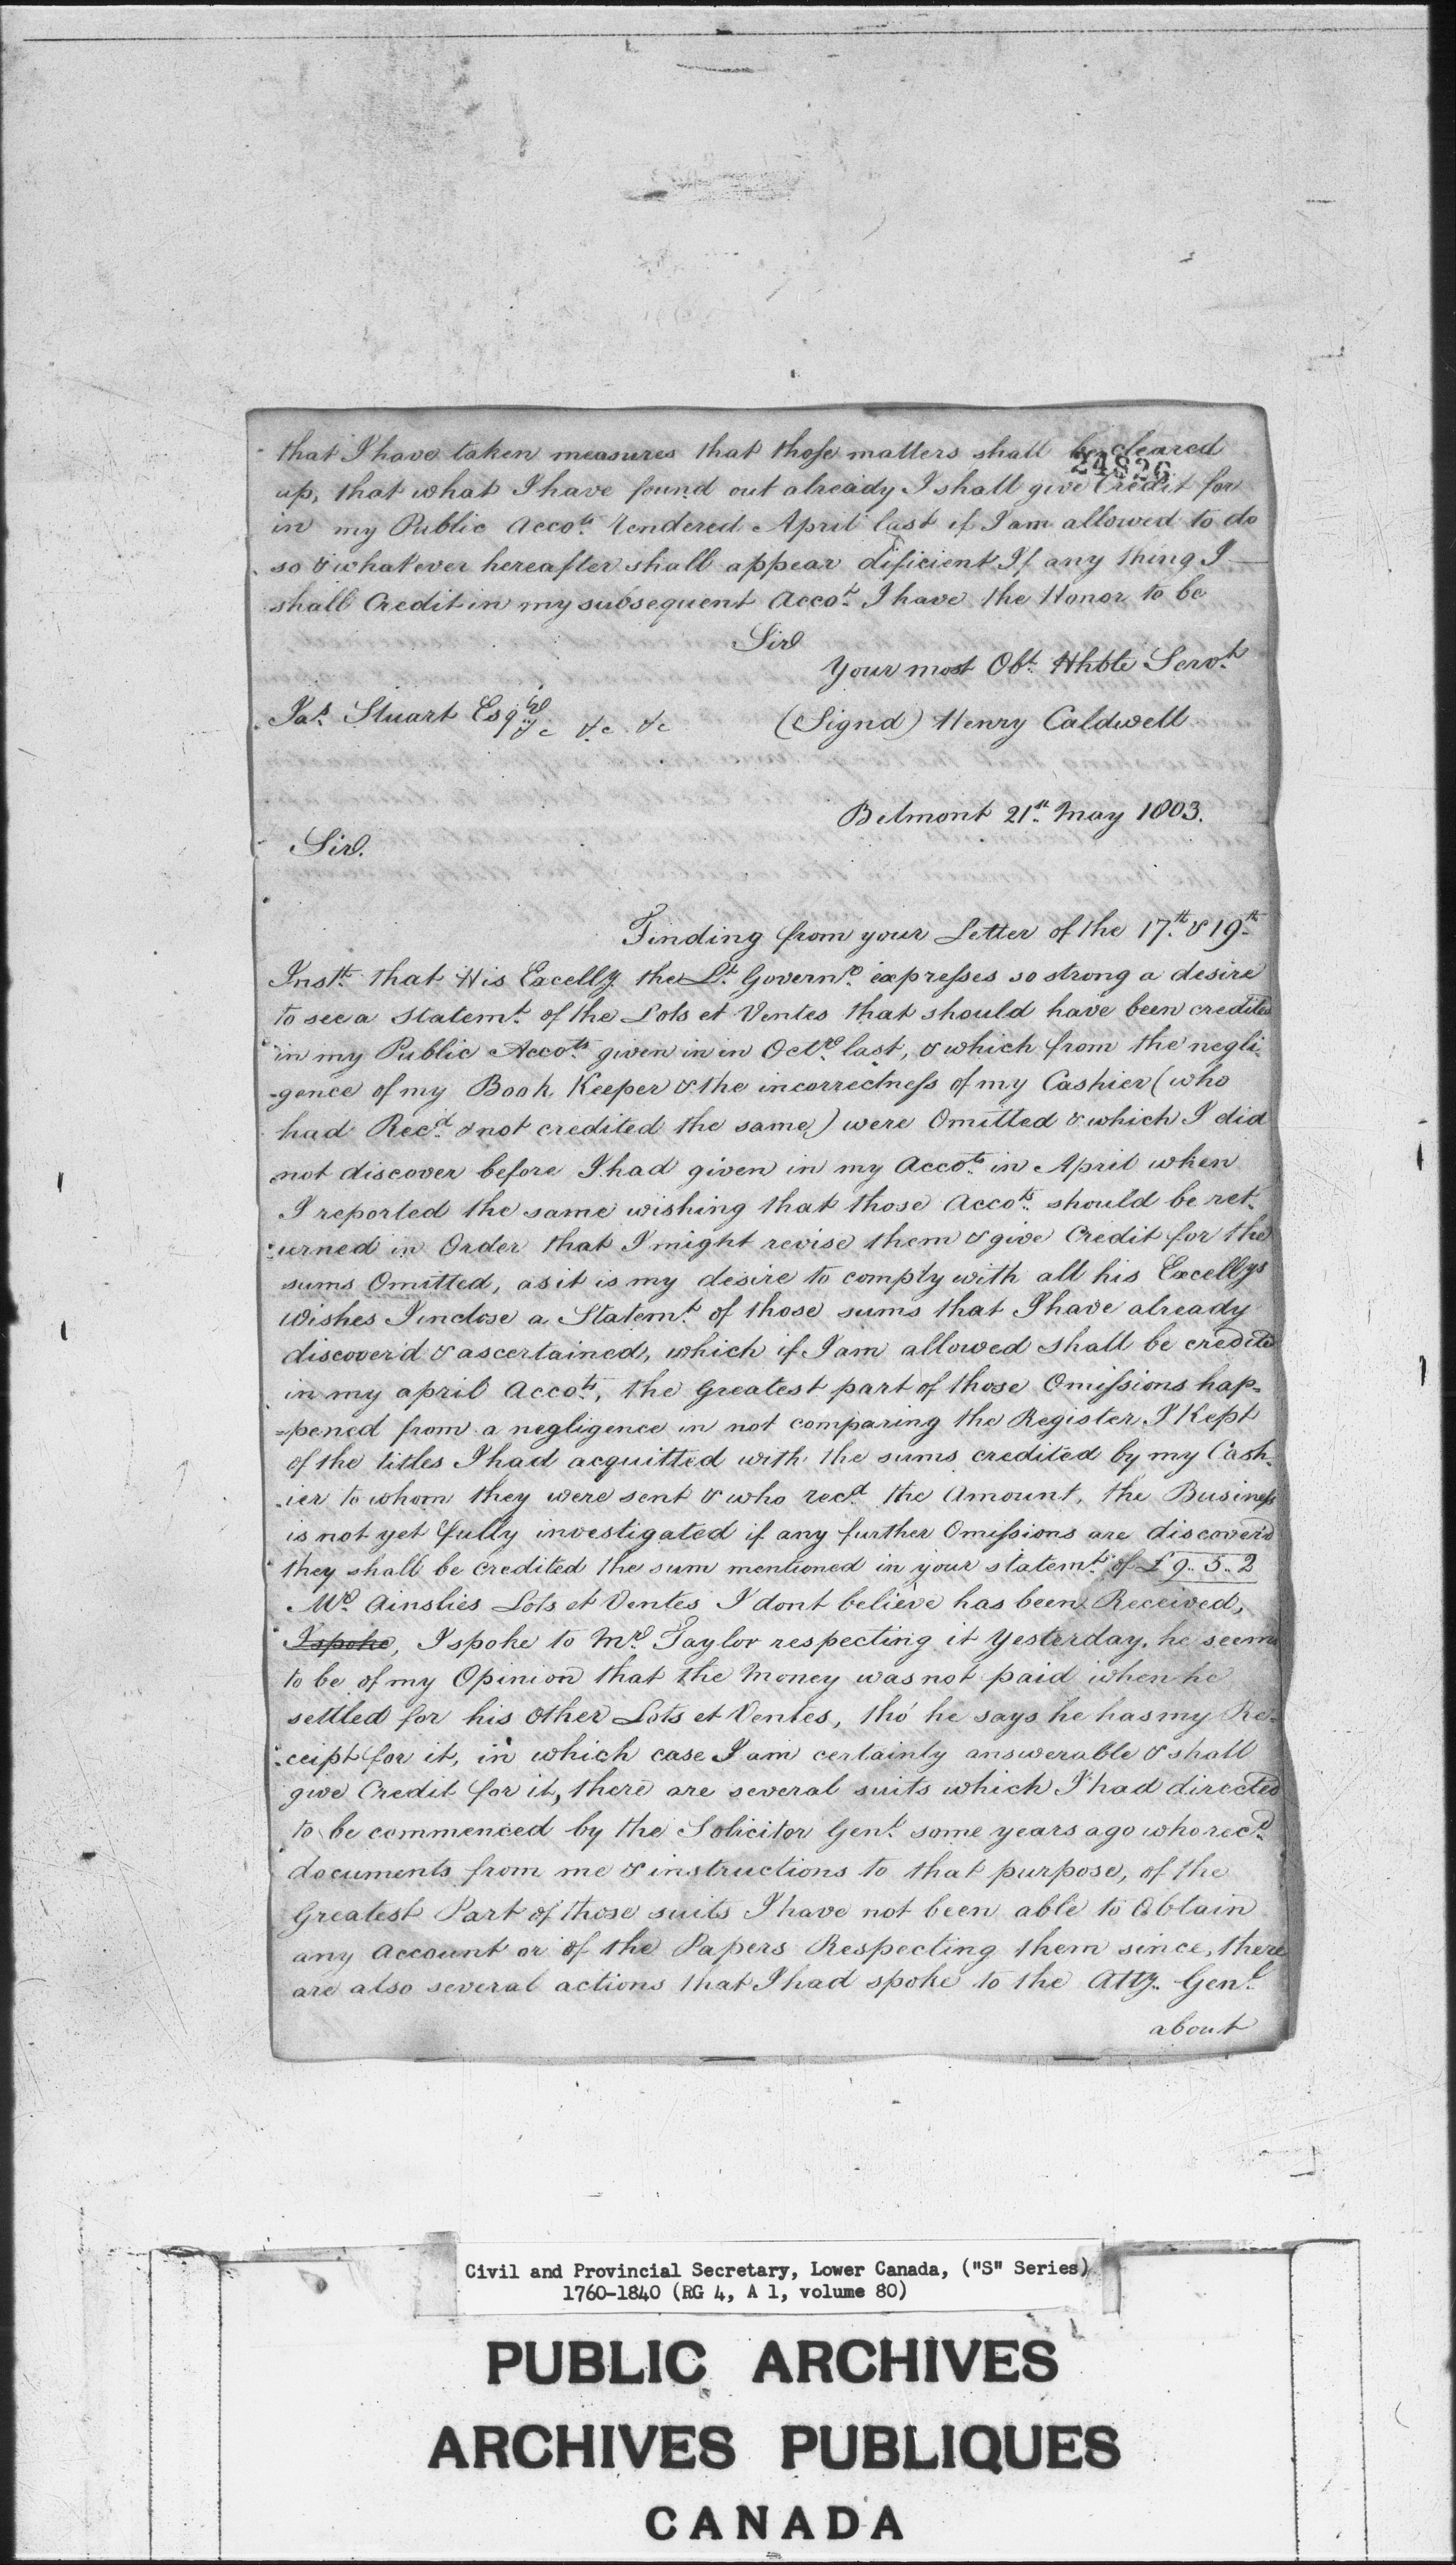 that I have taken measures that those matters shall be cleared
24826
up, that what I have found out already I shall give Credit for
in my Public Accots. rendered April last if I am allowed to do
so & whatever hereafter shall appear dificient If any thing I —
shall Credit in my subsequent Accot. I have the Honor to be
Sir
Your most Obt. Hhble Servt.
Jas. Stuart Esqre. &c &c &c
(Signd) Henry Caldwell
Belmont 21st. May 1803.
Sir.
Finding from your Letter of the 17th. & 19th.
Instt. that His Excelly. the Lt. Governr. expresses so strong a desire
to see a Statemt. of the Lots et Ventes that should have been credited
in my Public Accots. given in in Octr. last, & which from the negli-
-gence of my Book Keeper & the incorrectness of my Cashier (who
had Recd. & not credited the same) were Omitted & which I did
not discover before I had given in my Accots. in April when
I reported the same wishing that those Accots. should be ret-
-urned in Order that I might revise them & give Credit for the
sums Omitted, as it is my desire to comply with all his Excellys
Wishes I inclose a Statemt. of those sums that I have already
discover'd & ascertained, which if I am allowed shall be credited
in my april Accots., the Greatest part of those Omissions hap-
-pened from a negligence in not comparing the Register I Kept
of the titles I had acquitted with the sums credited by my Cash-
-ier to whom they were sent & who recd. the Amount, the Business
is not yet fully investigated if any further Omissions are discover'd
they shall be credited the sum mentioned in your statemt. of £9..5..2
Mr. Ainslies Lots et Ventes I dont believe has been Received,
I spoke, I spoke to Mr. Taylor respecting it Yesterday, he seems
to be of my Opinion that the Money was not paid when he
settled for his Other Lots et Ventes, tho' he says he has my Re-
-ceipt for it, in which case I am certainly answerable & shall
give Credit for it, there are several suits which I had directed
to be commenced by the Solicitor Genl. some years ago who recd.
documents from me & instructions to that purpose, of the
Greatest Part of those suits I have not been able to Obtain
any Account or of the Papers Respecting them since, there
are also several actions that I had spoke to the Atty. Genl.
about
Civil and Provincial Secretary, Lower Canada, ("S" Series)
1760-1840 (RG 4, A 1, volume 80)
PUBLIC ARCHIVES
ARCHIVES PUBLIQUES
CANADA